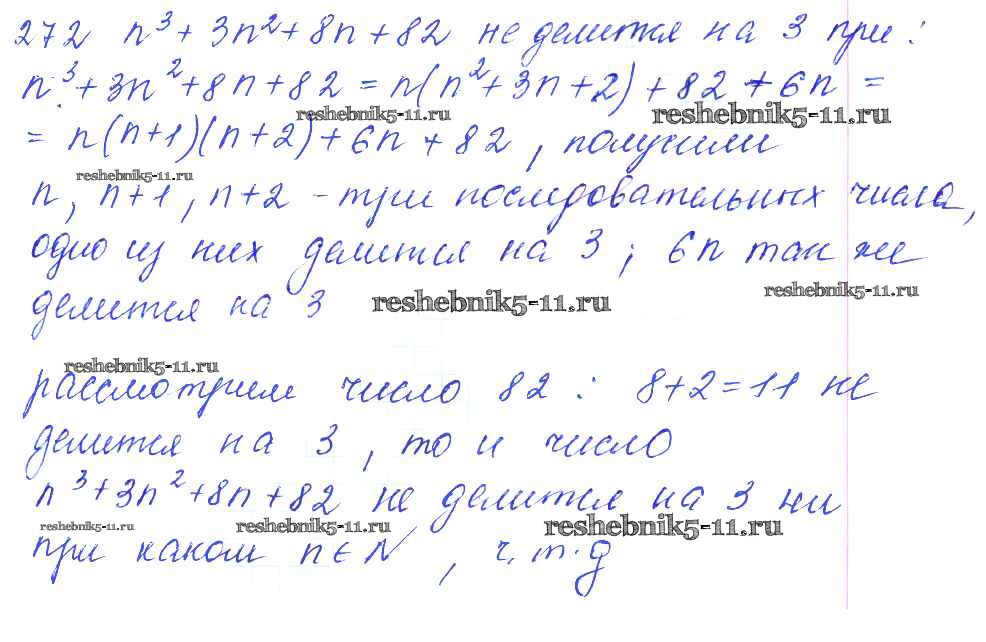 272 n³ + 3n² + 8n + 82 не делится на 3 при :
n³ + 3n² + 8n + 82 = n(n² + 3n + 2) + 82 + 6n =
reshebnik5-11.ru reshebnik5-11.ru
= n(n+1)(n+2) + 6n + 82 , получили
reshebnik5-11.ru
n, n+1, n+2 - три последовательных числа,
одно из них делится на 3 ; 6n так же
делится на 3 reshebnik5-11.ru reshebnik5-11.ru
reshebnik5-11.ru
рассмотрим число 82 : 8+2=11 не
делится на 3 , то и число
n³ + 3n² + 8n + 82 не делится на 3 ни
reshebnik5-11.ru reshebnik5-11.ru reshebnik5-11.ru
при каком n ∈ N , ч.т.д